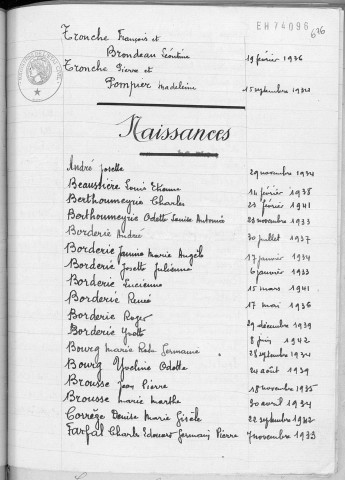 EH74096
626
Tronche François et
Brondeau Léontine 19 février 1936
Tronche Pierre et
Pompier Madeleine 15 septembre 1934
Naissances
André Josette 29 novembre 1934
Beaussière Louis Etienne 14 février 1938
Berthoumeyrie Charles 23 février 1941
Berthoumeyrie Odette Louise Antonia 23 novembre 1933
Borderie André 30 juillet 1937
Borderie Janine Marie Angèle 17 janvier 1934
Borderie Josette Julienne 6 janvier 1933
Borderie Lucienne 15 mars 1941
Borderie René 17 mai 1936
Borderie Roger 29 décembre 1939
Borderie Yvette 8 juin 1942
Bourg Marie Rose Germaine 28 septembre 1934
Bourg Yveline Odette 24 août 1939
Brousse Jean Pierre 18 novembre 1935
Brousse Marie Marthe 30 avril 1934
Corrèze Denise Marie Gisèle 22 septembre 1942
Farfal Charles Edouard Germain Pierre 7 novembre 1933